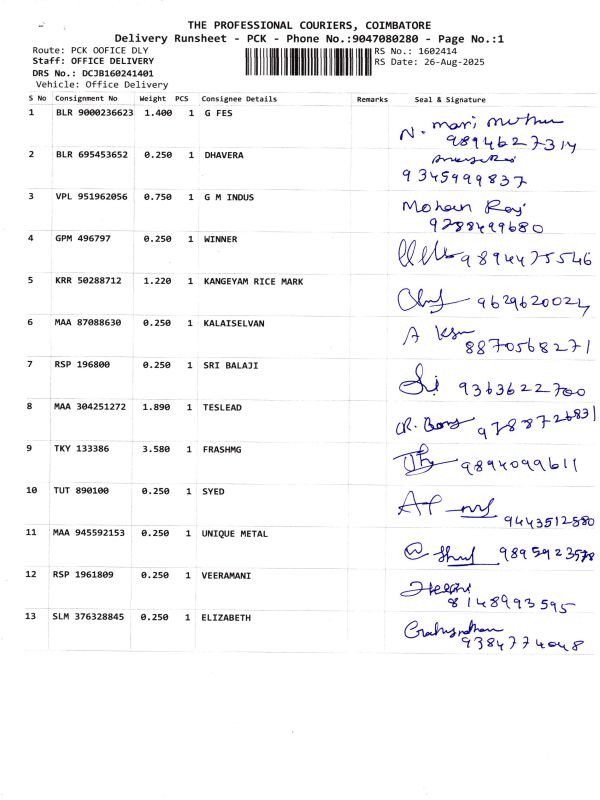 THE PROFESSIONAL COURIERS, COIMBATORE
Delivery Runsheet - PCK - Phone No.:9047080280 - Page No.:1
Route: PCK OOFICE DLY RS No.: 1602414
Staff: OFFICE DELIVERY RS Date: 26-Aug-2025
DRS No.: DCJB160241401
Vehicle: Office Delivery
S No Consignment No Weight PCS Consignee Details Remarks Seal & Signature
1 BLR 9000236623 1.400 1 G FES N. mari muthu
9894627314
2 BLR 695453652 0.250 1 DHAVERA
9345999837
3 VPL 951962056 0.750 1 G M INDUS Mohan Raj
9788499680
4 GPM 496797 0.250 1 WINNER 9894475546
5 KRR 50288712 1.220 1 KANGEYAM RICE MARK 9629620024
6 MAA 87088630 0.250 1 KALAISELVAN A
8870568271
7 RSP 196800 0.250 1 SRI BALAJI 9363622700
8 MAA 304251272 1.890 1 TESLEAD 9788726831
9 TKY 133386 3.580 1 FRASHMG 9894099611
10 TUT 890100 0.250 1 SYED
9443512880
11 MAA 945592153 0.250 1 UNIQUE METAL
12 RSP 1961809 0.250 1 VEERAMANI
8148993595
13 SLM 376328845 0.250 1 ELIZABETH
9384774048